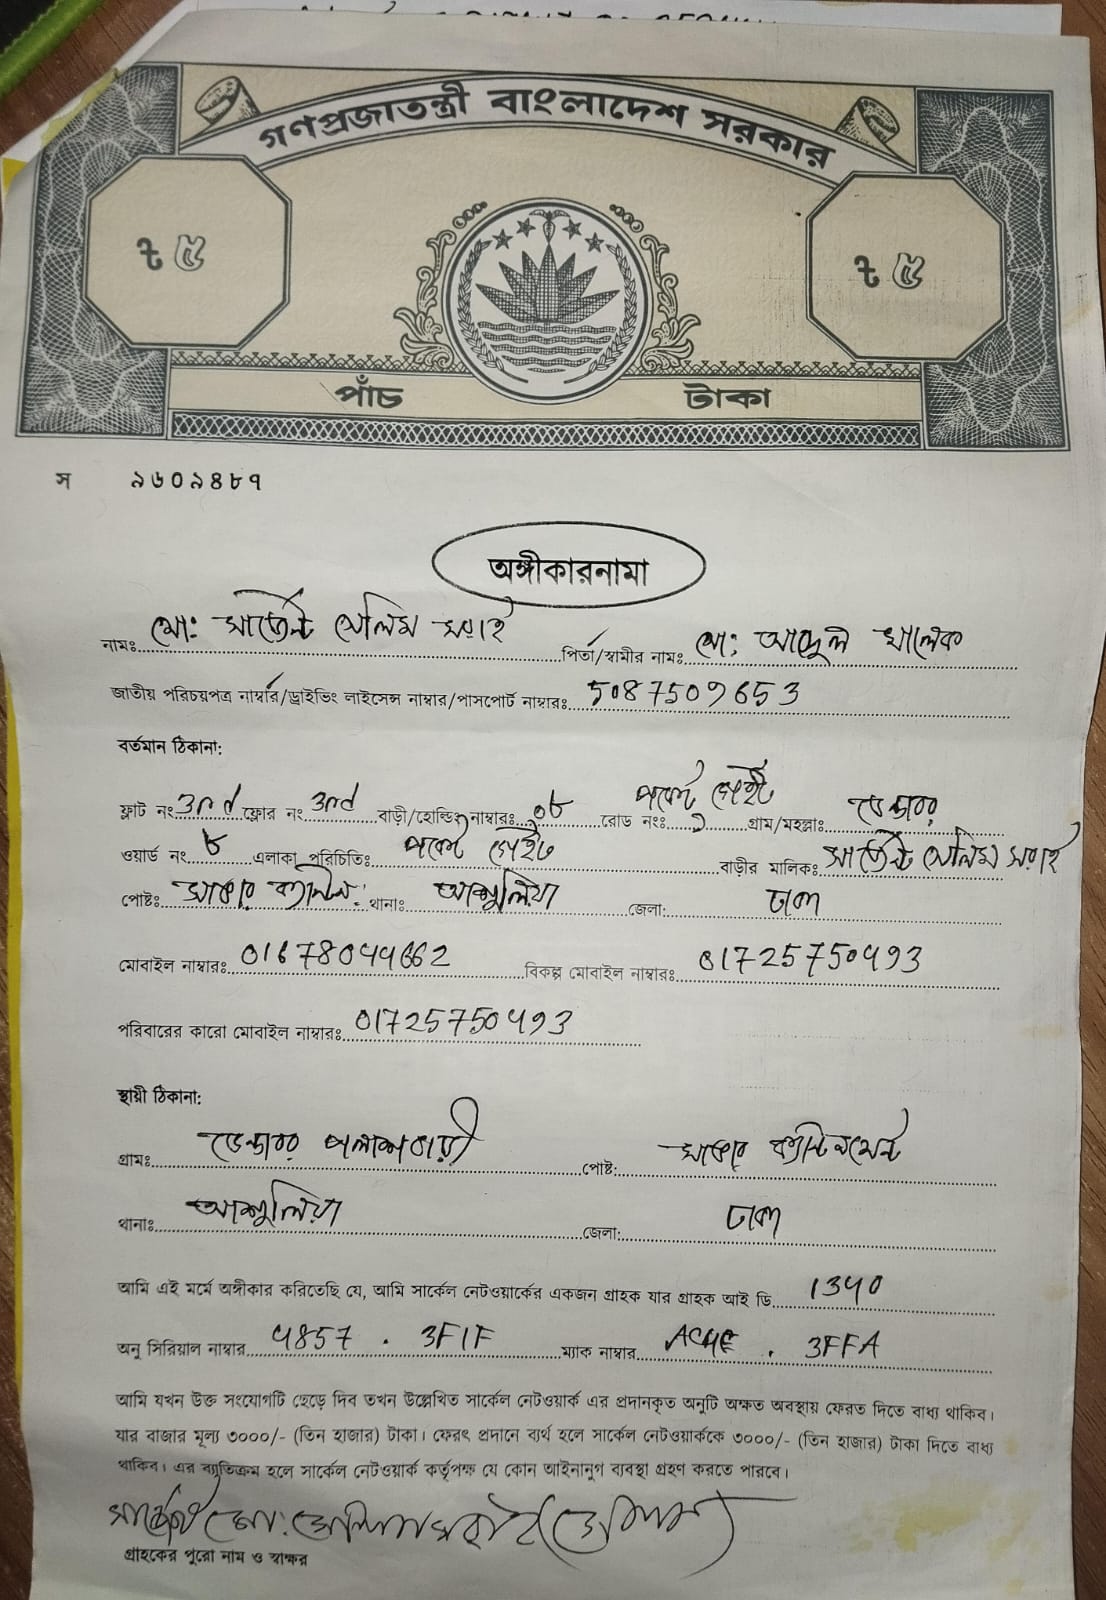 গণপ্রজাতন্ত্রী বাংলাদেশ সরকার
৳ ৫ ৳ ৫
পাঁচ টাকা
স ৯৬০৯৪৮৭
অঙ্গীকারনামা
নামঃ মোঃ সার্জেন্ট সেলিম সরাই পিতা/স্বামীর নামঃ মোঃ আব্দুল খালেক
জাতীয় পরিচয়পত্র নাম্বার/ড্রাইভিং লাইসেন্স নাম্বার/পাসপোর্ট নাম্বারঃ 5087509653
বর্তমান ঠিকানা:
ফ্লাট নং 3rd ফ্লোর নং 3rd বাড়ী/হোল্ডিং নাম্বারঃ ০৮ রোড নংঃ পকেট গেইট গ্রাম/মহল্লাঃ ডেন্ডাবর
ওয়ার্ড নং ৮ এলাকা পরিচিতিঃ পকেট গেইট বাড়ীর মালিকঃ সার্জেন্ট সেলিম সরাই
পোষ্টঃ সাভার থানাঃ আশুলিয়া জেলা: ঢাকা
মোবাইল নাম্বারঃ 01678044662 বিকল্প মোবাইল নাম্বারঃ 01725750493
পরিবারের কারো মোবাইল নাম্বারঃ 01725750493
স্থায়ী ঠিকানা:
গ্রামঃ ডেন্ডাবর পলাশবাড়ী পোষ্ট: সাভার ক্যান্টনমেন্ট
থানাঃ আশুলিয়া জেলা: ঢাকা
আমি এই মর্মে অঙ্গীকার করিতেছি যে, আমি সার্কেল নেটওয়ার্কের একজন গ্রাহক যার গ্রাহক আই ডি 1340
অনু সিরিয়াল নাম্বার 4857 . 3F1F ম্যাক নাম্বার . 3FFA
আমি যখন উক্ত সংযোগটি ছেড়ে দিব তখন উল্লেখিত সার্কেল নেটওয়ার্ক এর প্রদানকৃত অনুটি অক্ষত অবস্থায় ফেরত দিতে বাধ্য থাকিব।
যার বাজার মূল্য ৩০০০/- (তিন হাজার) টাকা। ফেরৎ প্রদানে ব্যর্থ হলে সার্কেল নেটওয়ার্ককে ৩০০০/- (তিন হাজার) টাকা দিতে বাধ্য
থাকিব। এর ব্যতিক্রম হলে সার্কেল নেটওয়ার্ক কর্তৃপক্ষ যে কোন আইনানুগ ব্যবস্থা গ্রহণ করতে পারবে।
গ্রাহকের পুরো নাম ও স্বাক্ষর